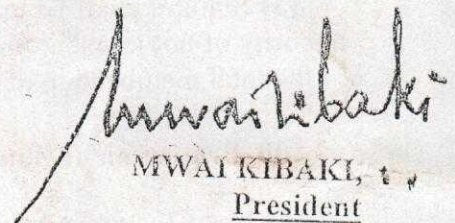 Mwai Kibaki
MWAI KIBAKI,
President